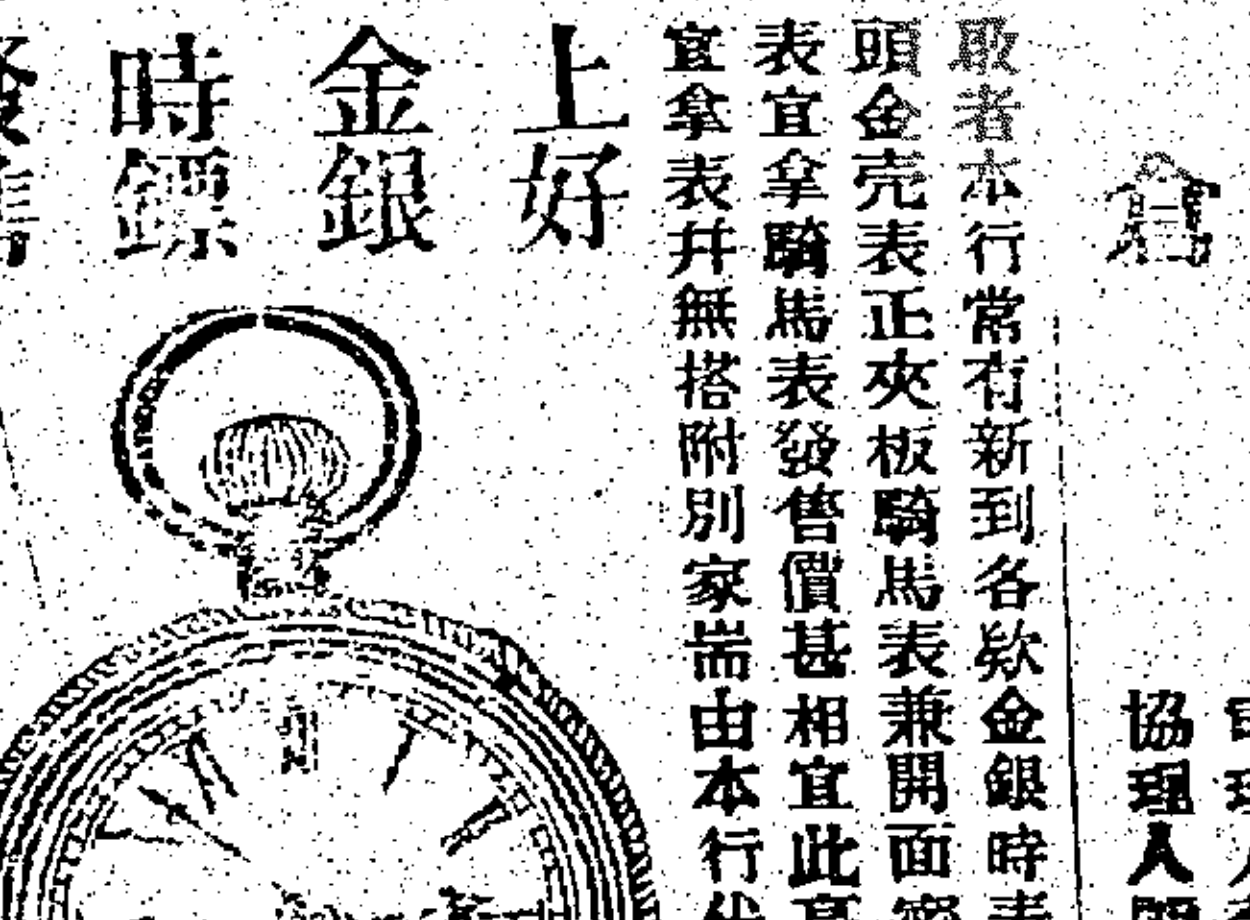 協理人
啟者本行常有新到各欵金銀時表
頭金壳表正夾板騎馬表兼開面
表宜拿騎馬表發售價甚相宜此
宜拿表幷無搭附別家耑由本行代
上好
金銀
時鏢